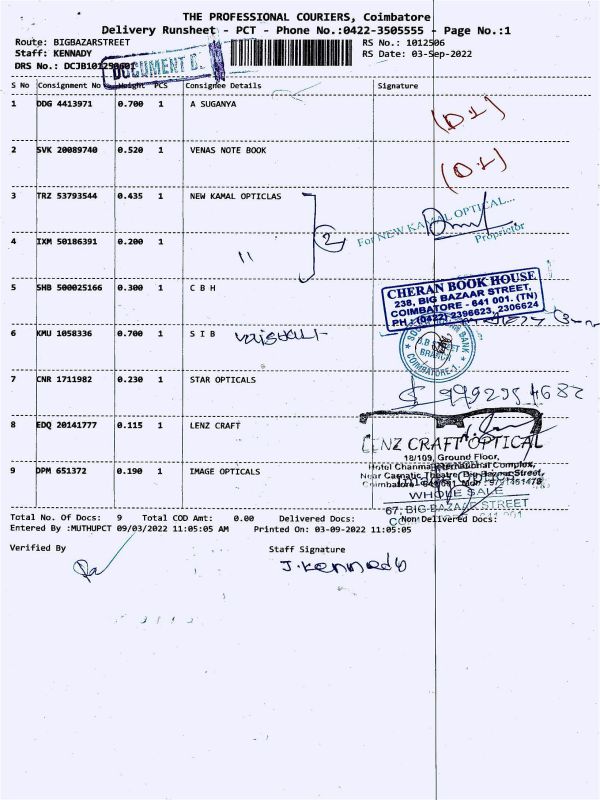 THE PROFESSIONAL COURIERS, Coimbatore
Delivery Runsheet - PCT - Phone No.:0422-3505555 - Page No.:1
Route: BIGBAZARSTREET
RS No.: 1012506
Staff: KENNADY
RS Date: 03-Sep-2022
DRS No.: DCJB101250601
DOCUMENT D.
S No Consignment No Weight PCS Consignee Details Signature
1 DDG 4413971 0.700 1 A SUGANYA
(D1)
2 SVK 20089740 0.520 1 VENAS NOTE BOOK
(D1)
3 TRZ 53793544 0.435 1 NEW KAMAL OPTICLAS
For NEW KAMAL OPTICAL...
Proprietor
2
4 IXM 50186391 0.200 1 "
5 SHB 500025166 0.300 1 C B H
CHERAN BOOK HOUSE
238, BIG BAZAAR STREET,
COIMBATORE - 641 001. (TN)
PH : (0422) 2396623, 2306624
6 KMU 1058336 0.700 1 S I B
BANK
B.B STREET
BRANCH
COIMBATORE-1.
7 CNR 1711982 0.230 1 STAR OPTICALS
8 EDQ 20141777 0.115 1 LENZ CRAFT
LENZ CRAFT OPTICAL
18/109, Ground Floor,
Hotel Channma International Complex,
Near Carnatic Theatre, Big Bazaar Street,
9 DPM 651372 0.190 1 IMAGE OPTICALS
WHOLE SALE
67, BIG BAZAAR STREET
Total No. Of Docs: 9 Total COD Amt: 0.00 Delivered Docs: Non Delivered Docs:
Entered By :MUTHUPCT 09/03/2022 11:05:05 AM Printed On: 03-09-2022 11:05:05
Verified By
Staff Signature
J. Kennady